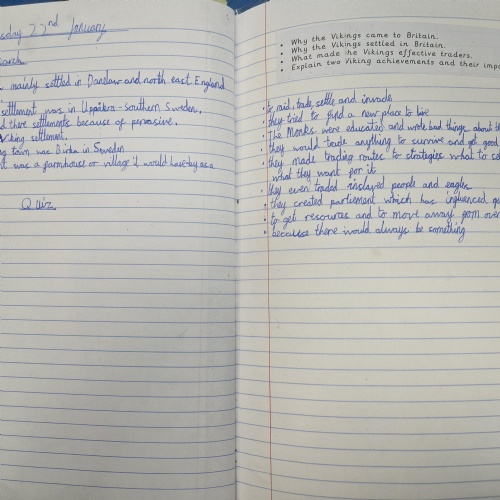 sday 22nd January
earch
mainly settled in Danelaw and north east England
settlement was in Uppåkra - Southern Sweden.
d there settlements because of pervasive.
Viking settlement.
g town was Birka in Sweden
nt was a farmhouse or village it would have by as a
Quiz
• Why the Vikings came to Britain.
• Why the Vikings settled in Britain.
• What made the Vikings effective traders.
• Explain two Viking achievements and their impo
• to raid, trade, settle and invade
• they tried to find a new place to live
• The Monks were educated and wrote bad things about th
• they would trade anything to survive and get good
• they made trading routes to strategies what to se
what they want for it
• they even traded inslaved people and eagles
• they created parliement which has influenced
• to get resources and to move away from over
• because there would always be something